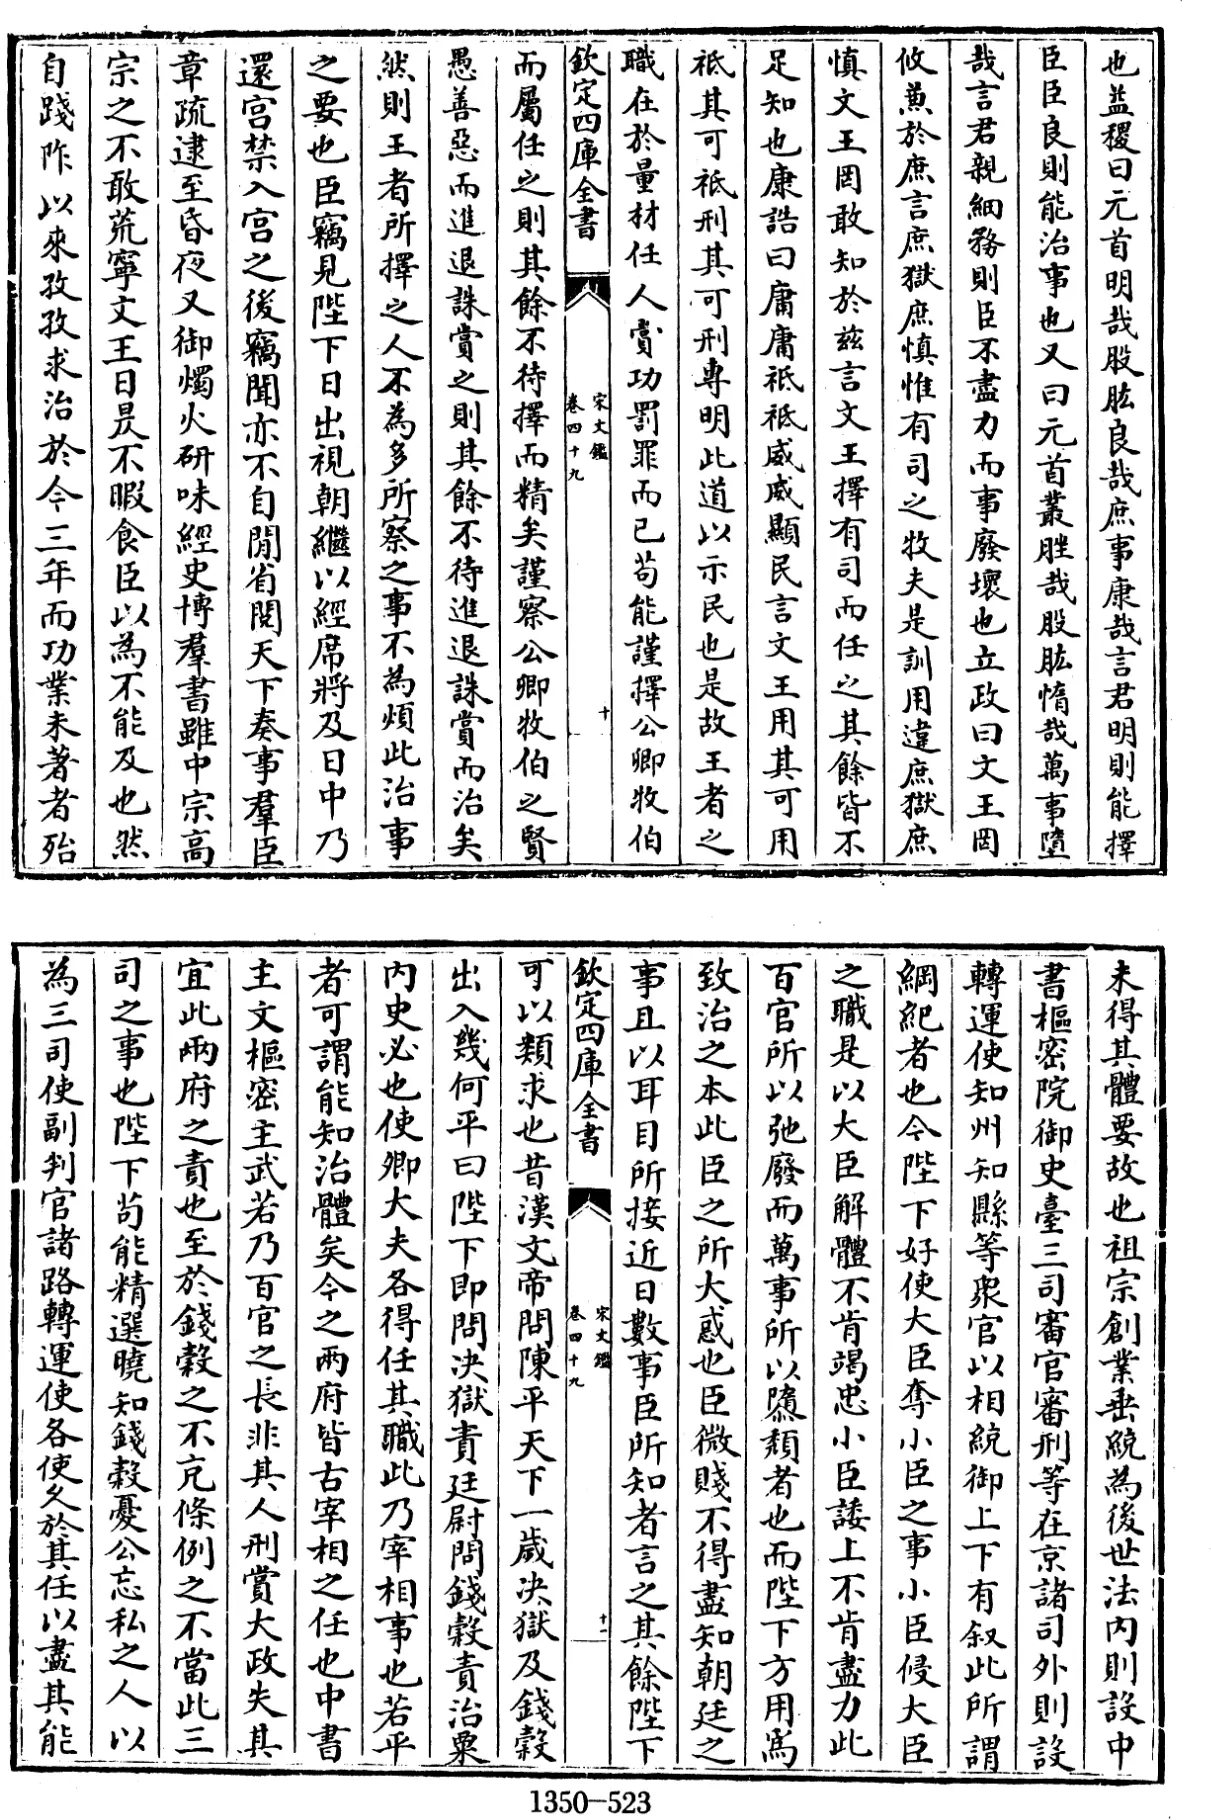 也益稷曰元首明哉股肱良哉庶事康哉言君明則能擇
臣臣良則能治事也又曰元首叢脞哉股肱惰哉萬事墮
哉言君親細務則臣不盡力而事廢壞也立政曰文王罔
攸兼於庶言庶獄庶慎惟有司之牧夫是訓用違庶獄庶
慎文王罔敢知於茲言文王擇有司而任之其餘皆不
足知也康誥曰庸庸祗祗威威顯民言文王用其可用
祗其可祗刑其可刑專明此道以示民也是故王者之
職在於量材任人賞功罰罪而已苟能謹擇公卿牧伯
欽定四庫全書
宋文鑑
卷四十九
十
而屬任之則其餘不待擇而精矣謹察公卿牧伯之賢
愚善惡而進退誅賞之則其餘不待進退誅賞而治矣
然則王者所擇之人不為多所察之事不為煩此治事
之要也臣竊見陛下日出視朝繼以經席將及日中乃
還宮禁入宮之後竊聞亦不自閒省閱天下奏事羣臣
章疏逮至昏夜又御燭火研味經史博羣書雖中宗高
宗之不敢荒寧文王日昃不暇食臣以為不能及也然
自踐阼以來孜孜求治於今三年而功業未著者殆
未得其體要故也祖宗創業垂統為後世法內則設中
書樞密院御史臺三司審官審刑等在京諸司外則設
轉運使知州知縣等衆官以相統御上下有叙此所謂
綱紀者也今陛下好使大臣奪小臣之事小臣侵大臣
之職是以大臣解體不肯竭忠小臣諉上不肯盡力此
百官所以弛廢而萬事所以隳頽者也而陛下方用為
致治之本此臣之所大惑也臣微賤不得盡知朝廷之
事且以耳目所接近日數事臣所知者言之其餘陛下
欽定四庫全書
宋文鑑
卷四十九
十一
可以類求也昔漢文帝問陳平天下一歲决獄及錢穀
出入幾何平曰陛下即問决獄責廷尉問錢穀責治粟
內史必也使卿大夫各得任其職此乃宰相事也若平
者可謂能知治體矣今之兩府皆古宰相之任也中書
主文樞密主武若乃百官之長非其人刑賞大政失其
宜此兩府之責也至於錢穀之不充條例之不當此三
司之事也陛下苟能精選曉知錢穀憂公忘私之人以
為三司使副判官諸路轉運使各使久於其任以盡其能
1350-523